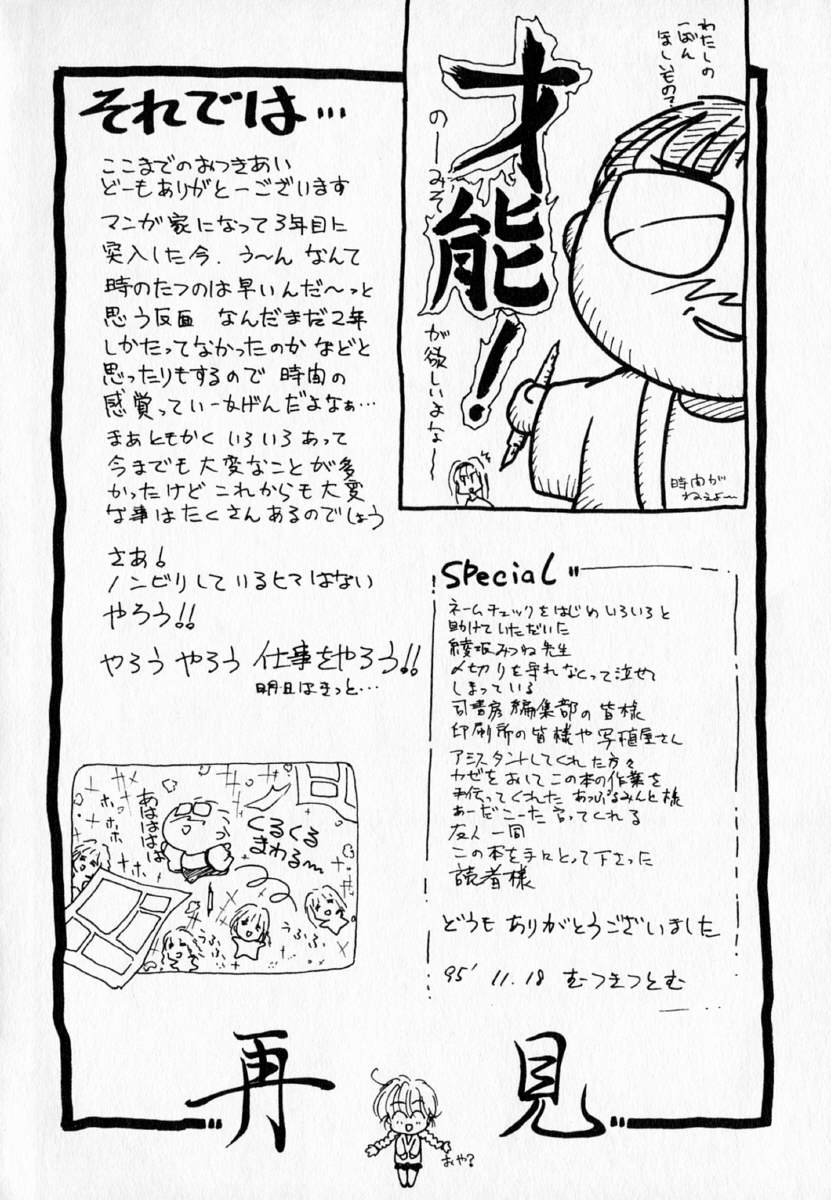 わたしの
一ばん
ほしいもの?
才能!
のーみそ
が欲しいよな〜
時間が
ねぇよ〜
それでは…
ここまでのおつきあい
どーもありがとーございます
マンガ家になって3年目に
突入した今、う〜ん なんて
時のたつのは早いんだ〜っと
思う反面 なんだまだ2年
しかたってなかったのか などと
思ったりもするので 時間の
感覚っていーかげんだよなぁ…
まぁともかく いろいろあって
今までも大変なことが多
かったけど これからも大変
な事はたくさんあるのでしょう
さあ!
ノンビリしているヒマはない
やろう!!
やろう やろう 仕事をやろう!!
明日はきっと…
Special
ネームチェックをはじめ いろいろと
助けていただいた
綾坂みつね先生
〆切りを守れなくって泣せて
しまっている
司書房編集部の皆様
印刷所の皆様や写植屋さん
アシスタントしてくれた方々
カゼをおして この本の作業を
手伝ってくれた あっぷるみんと様
あーだこーだ言ってくれる
友人一同
この本を手にとって下さった
読者様
どうも ありがとうございました
95' 11.18 むつきつとむ
あははははは
ホホホホ
くるくる
まわる〜
うふふ
うふふ
再見
おや?